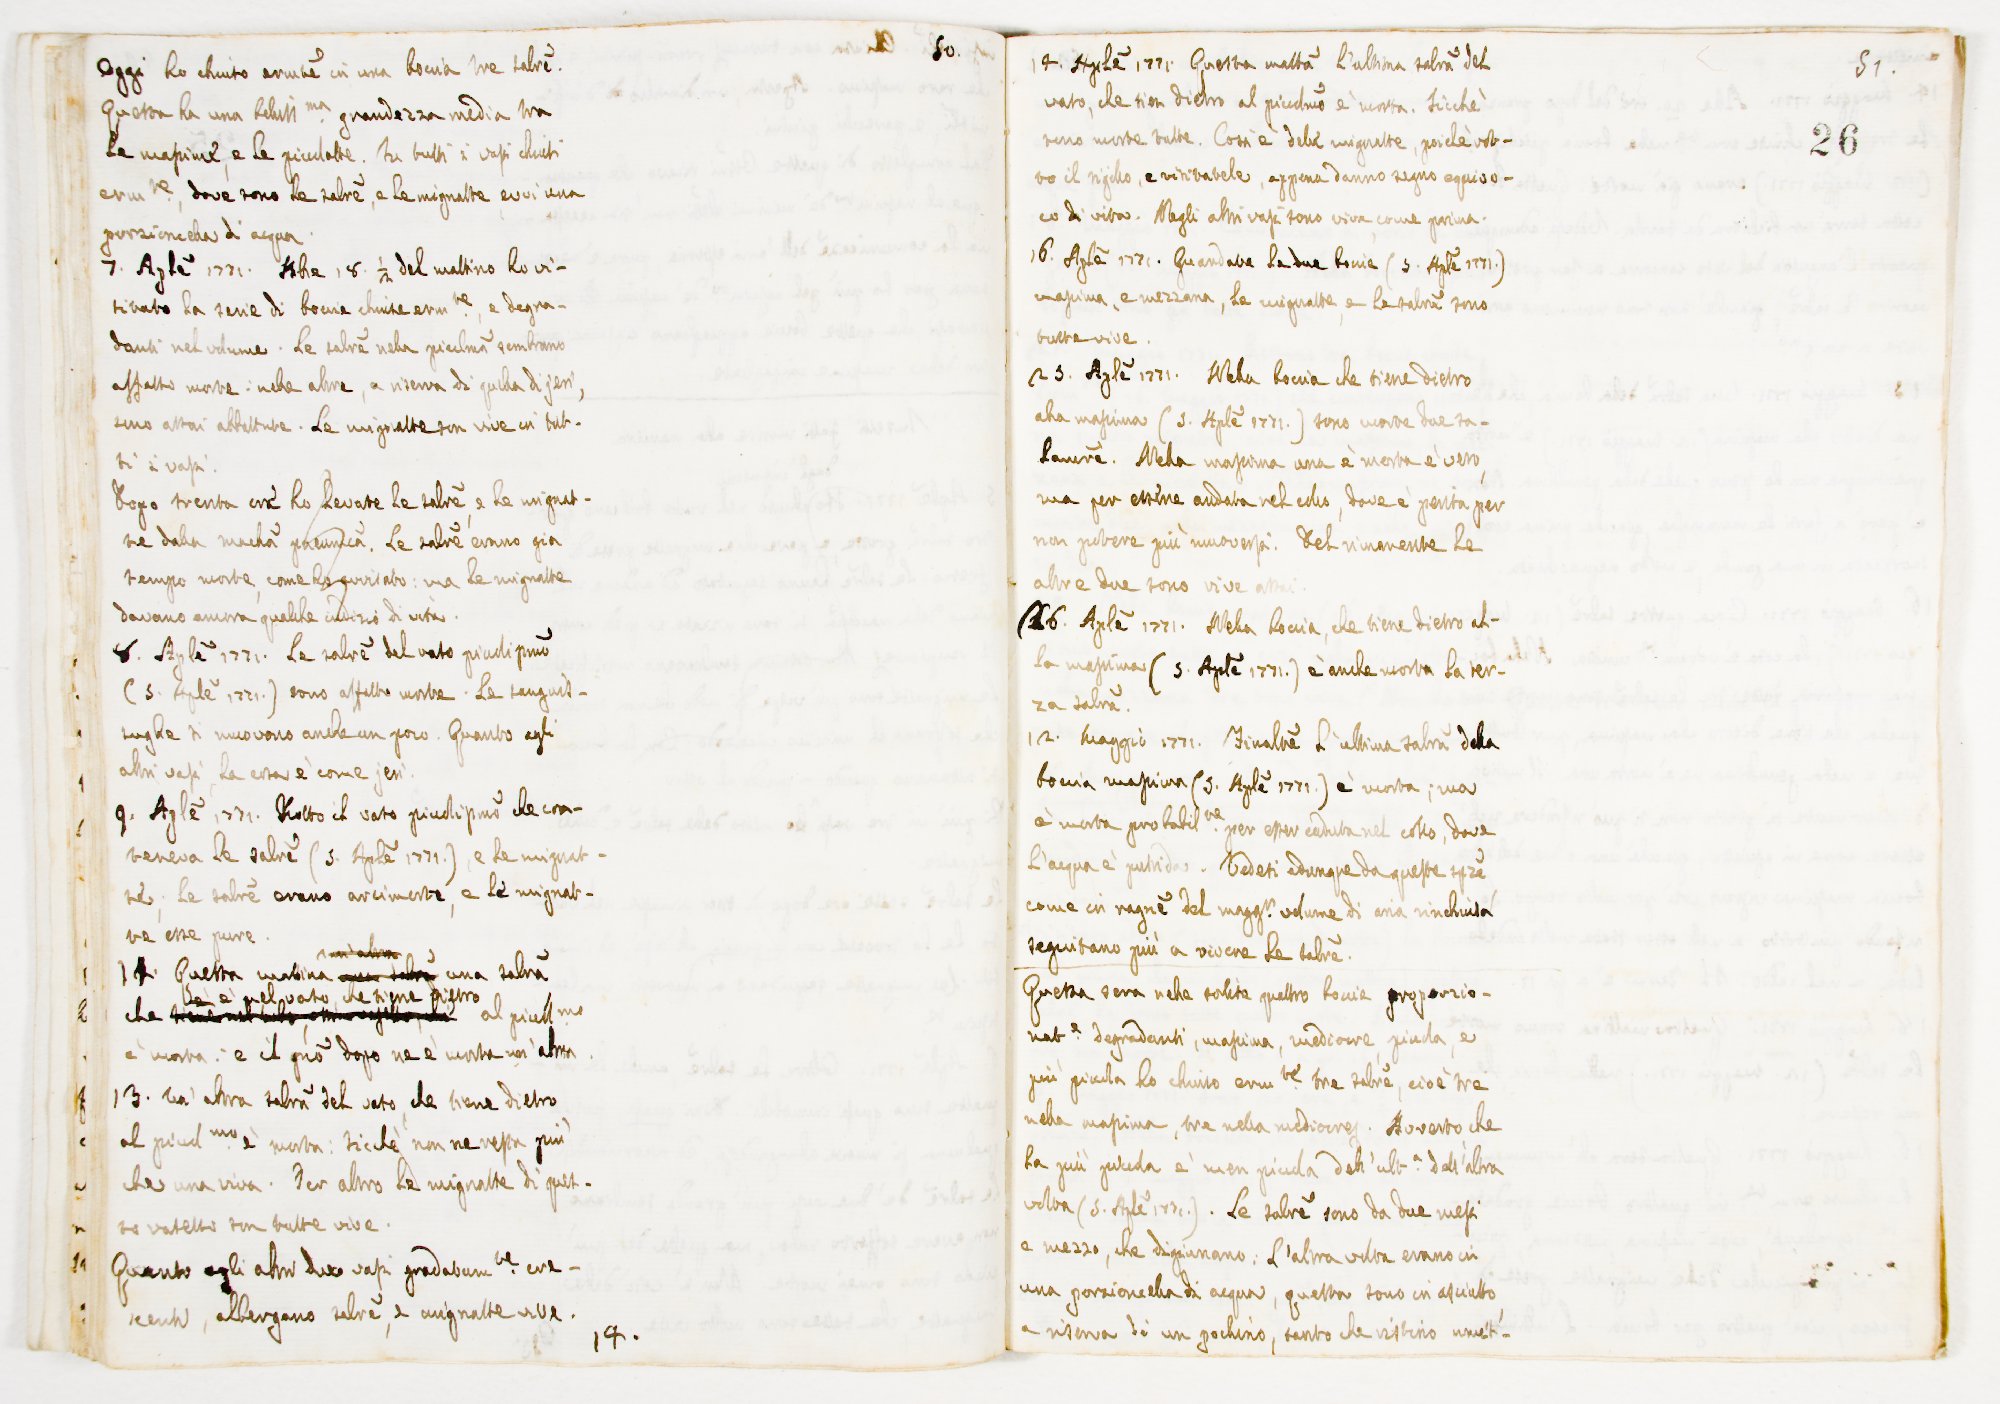 50.
Oggi ho chiuso ermtẽ in una boccia tre salrẽ.
Questa ha una bellissma grandezza media tra
le massimẽ, e le piccolette. In tutti i vasi chiusi
ermte, dove sono le salrẽ, e le mignatte evvi una
porzioncella di acqua.
7. Aplẽ 1771. Alle 18. ½ del mattino ho vi-
sitato la serie di boccie chiuse ermte, e degra-
danti nel volume. Le salrẽ nella piccolmã sembrano
affatto morte: nelle altre, a riserva di quella di jeri,
sono assai abbattute. Le mignatte son vive in tut-
ti i vasi.
Dopo trenta orẽ ho levate le salrẽ, e le mignat-
te dalla macchã pneumcã. Le salrẽ erano gia
tempo morte, come ho avvisato: ma le mignatte
davano ancora qualche indizio di vita.
8. Aplẽ 1771. Le salrẽ del vaso picolissmõ
(5. Aplẽ 1771.) sono affatto morte. Le sanguis-
sughe si muovono anche un poco. Quanto agli
altri vasi, la cosa è come jeri.
9. Aplẽ 1771. Rotto il vaso picolissmõ che con-
teneva le salrẽ (5. Aplẽ 1771.), e le mignat-
te, le salrẽ erano arcimorte, e le mignat-
te esse pure.
un'altra
12. Questa matina una salrã una salrã
che è nel vaso, che tiene dietro
che al piccolmo
è morta: e il gnõ dopo ne è morta un'altra.
13. Un'altra salrã del vaso, che tiene dietro
al piccolmo è morta: sicchè non ne resta più
che una viva. Per altro le mignatte di ques-
to vasetto son tutte vive.
Quanto agli altri due vasi gradatamte cre-
scenti, albergano salrẽ, e mignatte vive.
14.
51.
26
14. Aplẽ 1771. Questa mattã l'ultima salrã del
vaso, che tien dietro al picolmõ è morta. Sicchè
sono morte tutte. Così è delle mignatte, poichè rot-
to il sigillo, e visitatele, appena danno segno equivo-
co di vita. Negli altri vasi sono vive come prima.
16. Aplẽ 1771. Guardate le due boccie (5. Aplẽ 1771.)
massima, e mezzana, le mignatte, e le salrẽ sono
tutte vive.
25. Aplẽ 1771. Nella boccia che tiene dietro
alla massima (5. Aplẽ 1771.) sono morte due sa-
lamrẽ. Nella massima una è morta è vero,
ma per essere andata nel collo, dove è perita per
non potere più muoversi. Del rimanente le
altre due sono vive assai.
26. Aplẽ 1771. Nella boccia, che tiene dietro al-
la massima (5. Aplẽ 1771.) è anche morta la ter-
za salrã.
12. Maggio 1771. Finaltẽ l'ultima salrã della
boccia massima (5. Aplẽ 1771.) è morta; ma
è morta probabilte per esser caduta nel collo, dove
l'acqua è putrida. Vedesi adunque da queste sprẽ
come in ragnẽ del maggr volume di aria rinchiusa
seguitano più a vivere le salrẽ.
Questa sera nelle solite quattro boccie proporzio-
nate degradanti, massima, mediocre, piccola, e
più piccola ho chiuso ermte tre salrẽ, cioè tre
nella massima, tre nella mediocre. Avverto che
la più piccola è men piccola dell'ulta dell'altra
volta (5. Aplẽ 1771.). Le salrẽ sono da due mesi
e mezzo, che digiunano: l'altra volta erano in
una porzioncella di acqua, questa sono in asciutto,
a riserva di un pochino, tanto che restino umet-